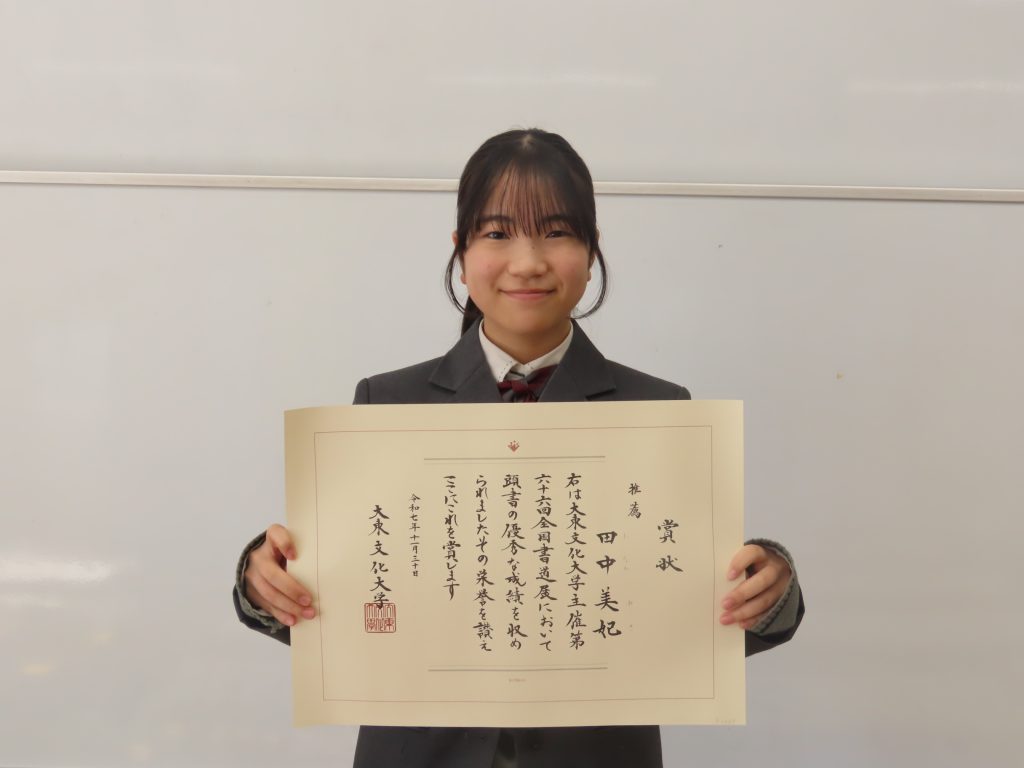 賞状
推薦
田中美妃
右は大東文化大学主催第
六十六回全国書道展において
頭書の優秀な成績を収め
られましたその栄誉を讃え
ここにこれを賞します
令和七年十一月三十日
大東文化大学